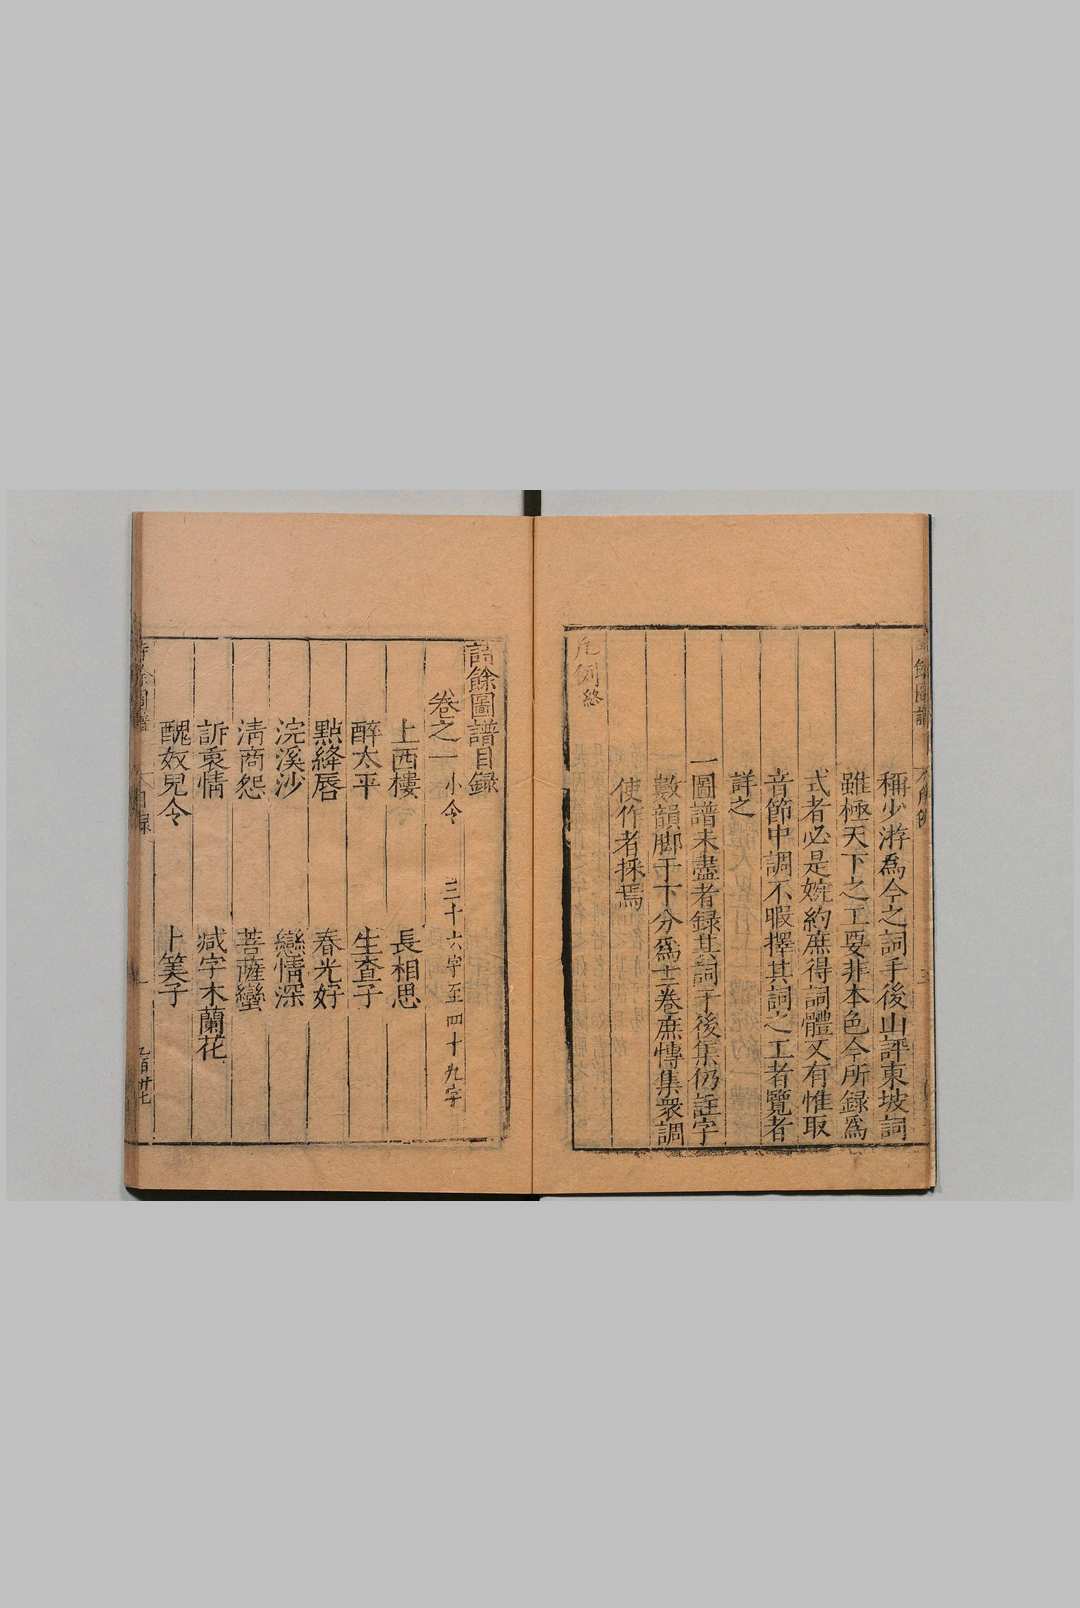 稱少游爲今之詞手後山評東坡詞
雖極天下之工要非本色今所録爲
式者必是婉約庶得詞體又有惟取
音節中調不暇擇其詞之工者覽者
詳之
一圖譜未盡者録其詞于後集仍註字
數韻脚于下分爲十二卷庶博集衆調
使作者採焉
凡例終
詩餘圖譜目録
卷之一 小令 三十六字至四十九字
上西樓 長相思
醉太平 生查子
點絳唇 春光好
浣溪沙 戀情深
清商怨 菩薩蠻
訴衷情 減字木蘭花
醜奴兒令 卜筭子
詩餘圖譜 目録 一